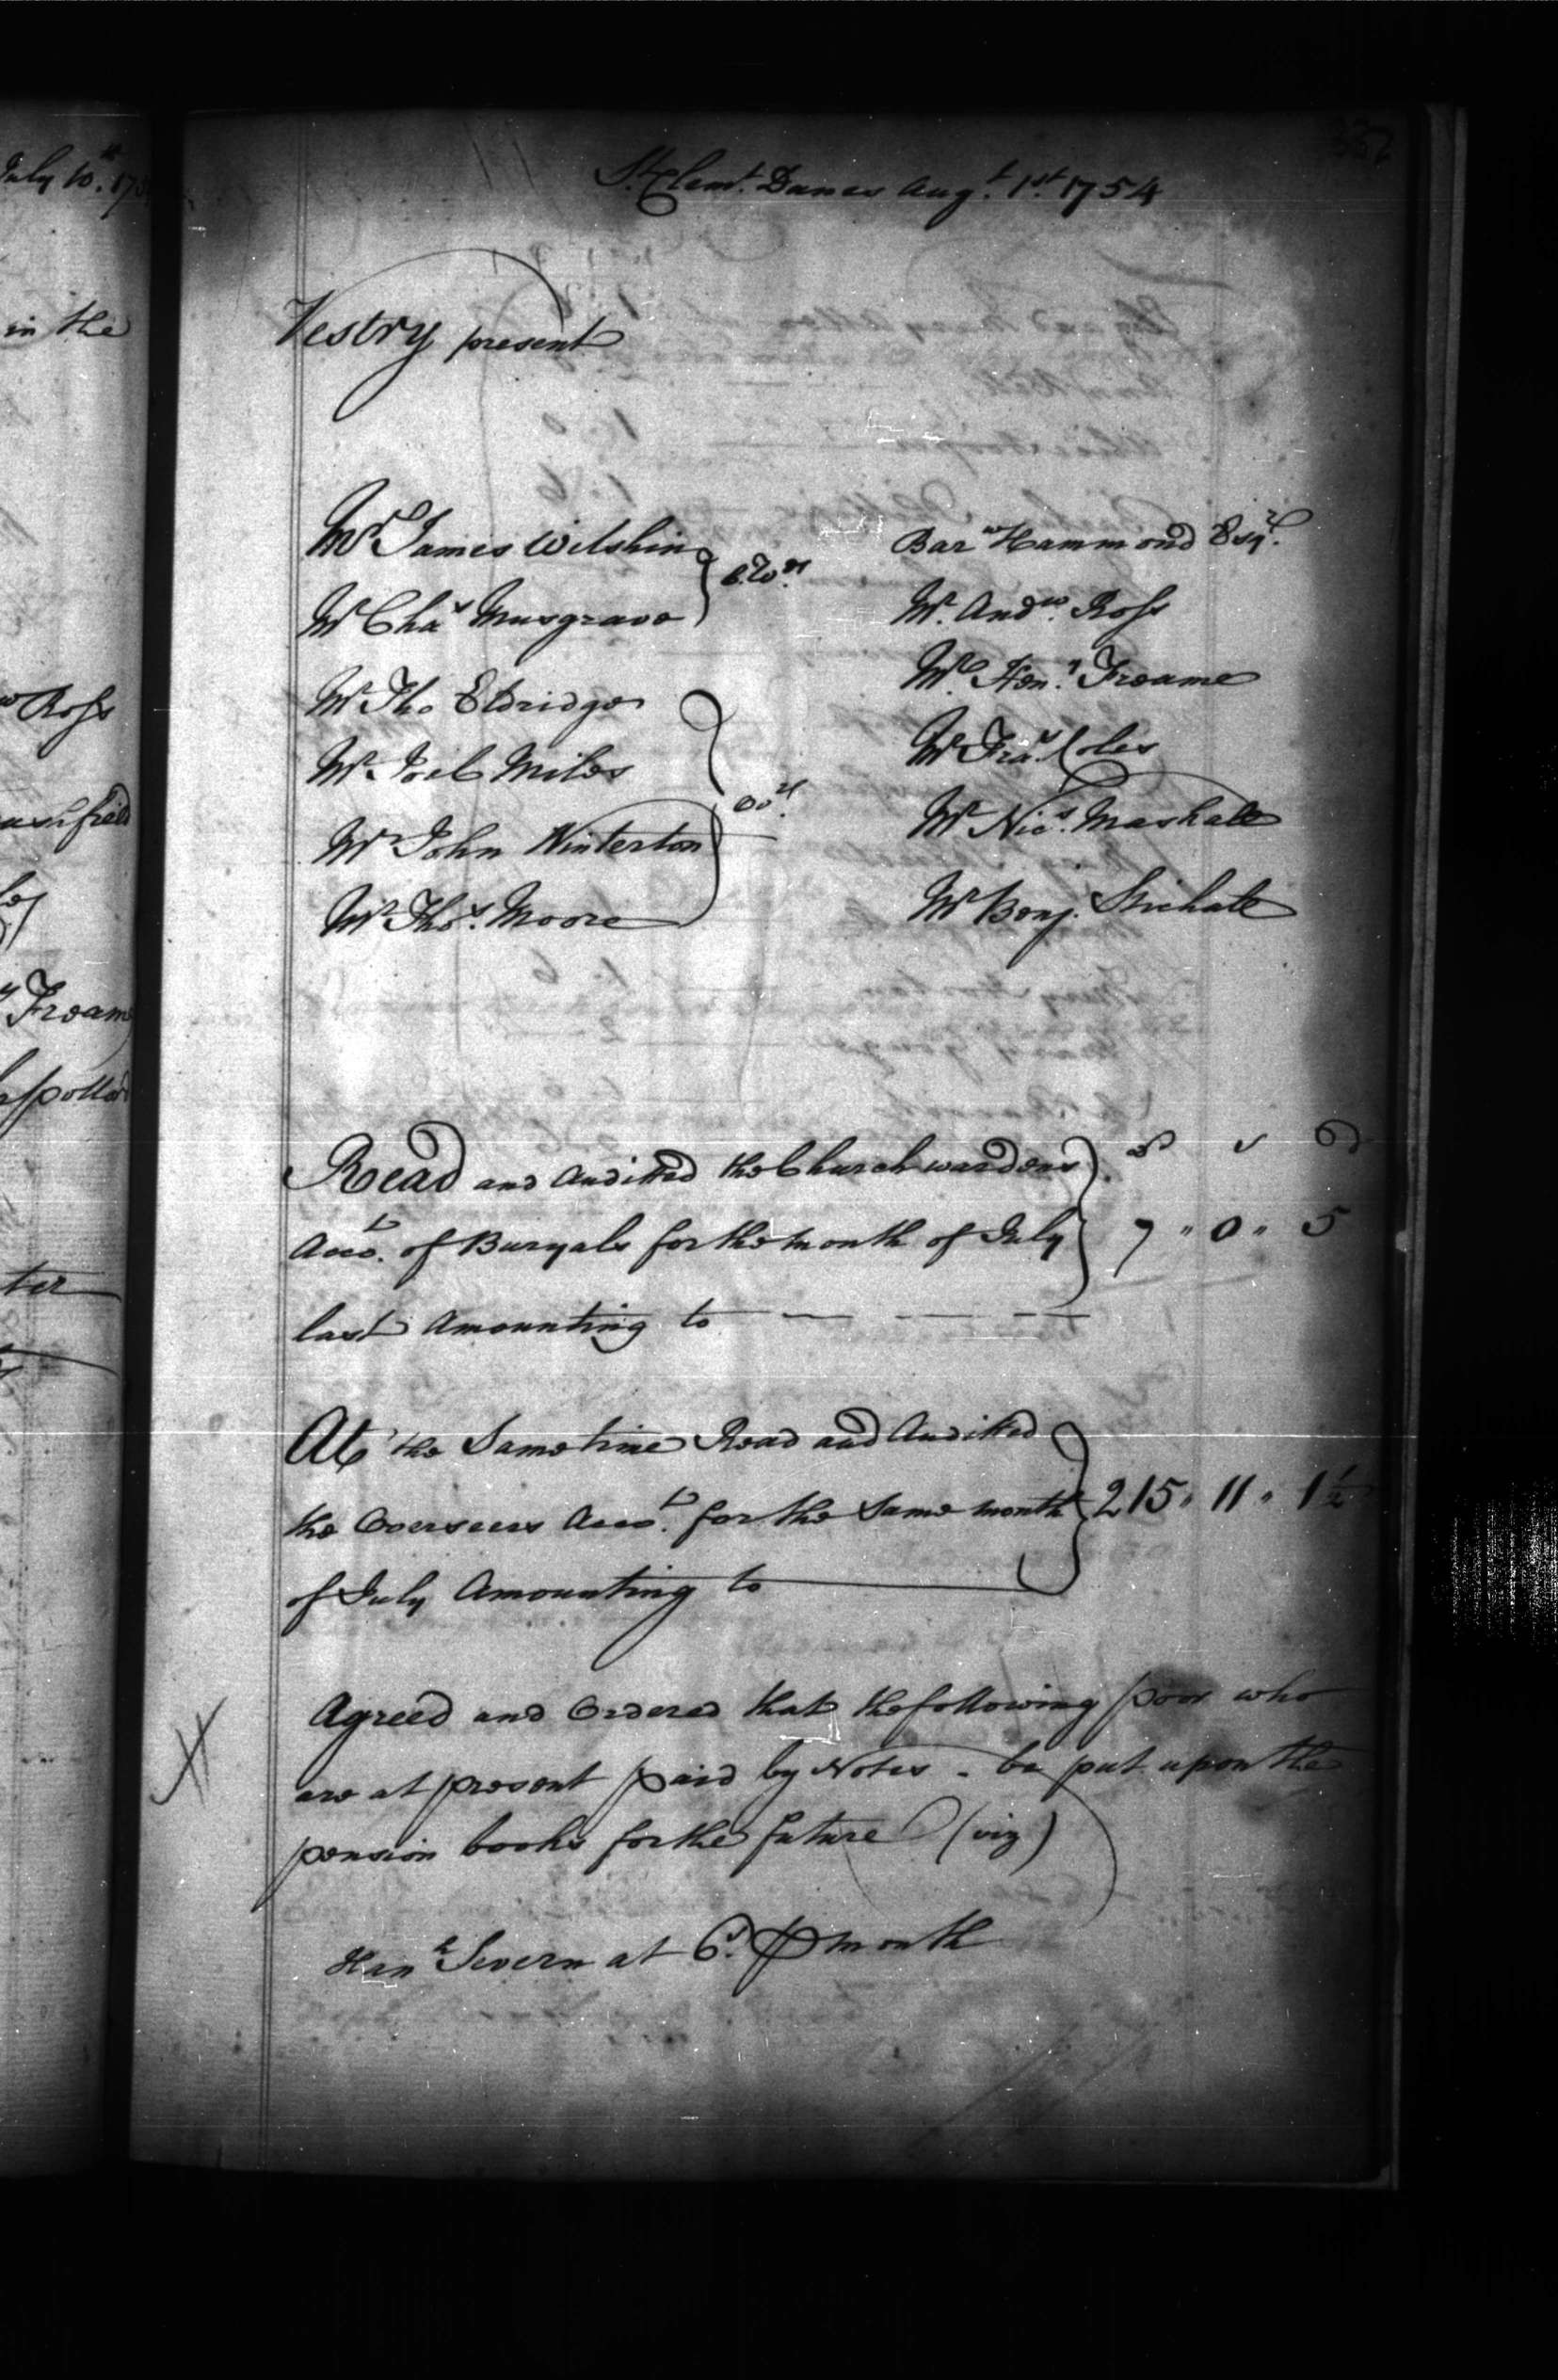 July 10.th 175
in the
w Ross
field
y Froame
Pollard
ter
337
St. Clemt. Danes Augt. 1st. 1754
Vestry present
Mr James Wilshin
Mr Chas Musgrave
C:Wns.
Mr Tho Eldridge
Mr Joel Miles
Mr John Winterton
Mr Thos. Moore
Oors.
Barw Hammond Esqr.
Mr. Andw. Ross
Mr. Hen.y Froame
Mr Fras. Coles
Mr Nics. Mashall
Mr Benj. Stichall
Read and Auditted the Churchwardens
Acct. of Buryals for the month of July
last Amounting to — — — —
£ s d
7 " 0 " 5
At the Same time Read and Auditted
the Overseers Acct. for the Same month
of July Amounting to ———
215 " 11 " 1½
Agreed and Ordered that the following poor who
are at present paid by Notes - be put upon the
pension books for the future (viz)
Hanh Severn at 6s. ⅌ month